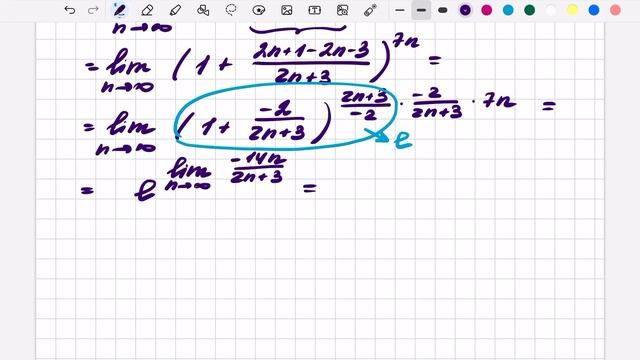 n→∞
= lim (1 + (2n+1-2n-3)/(2n+3))^7n =
n→∞
= lim (1 + (-2)/(2n+3))^((2n+3)/(-2) · (-2)/(2n+3) · 7n) =
n→∞
→ e
= e^(lim n→∞ (-14n)/(2n+3)) =